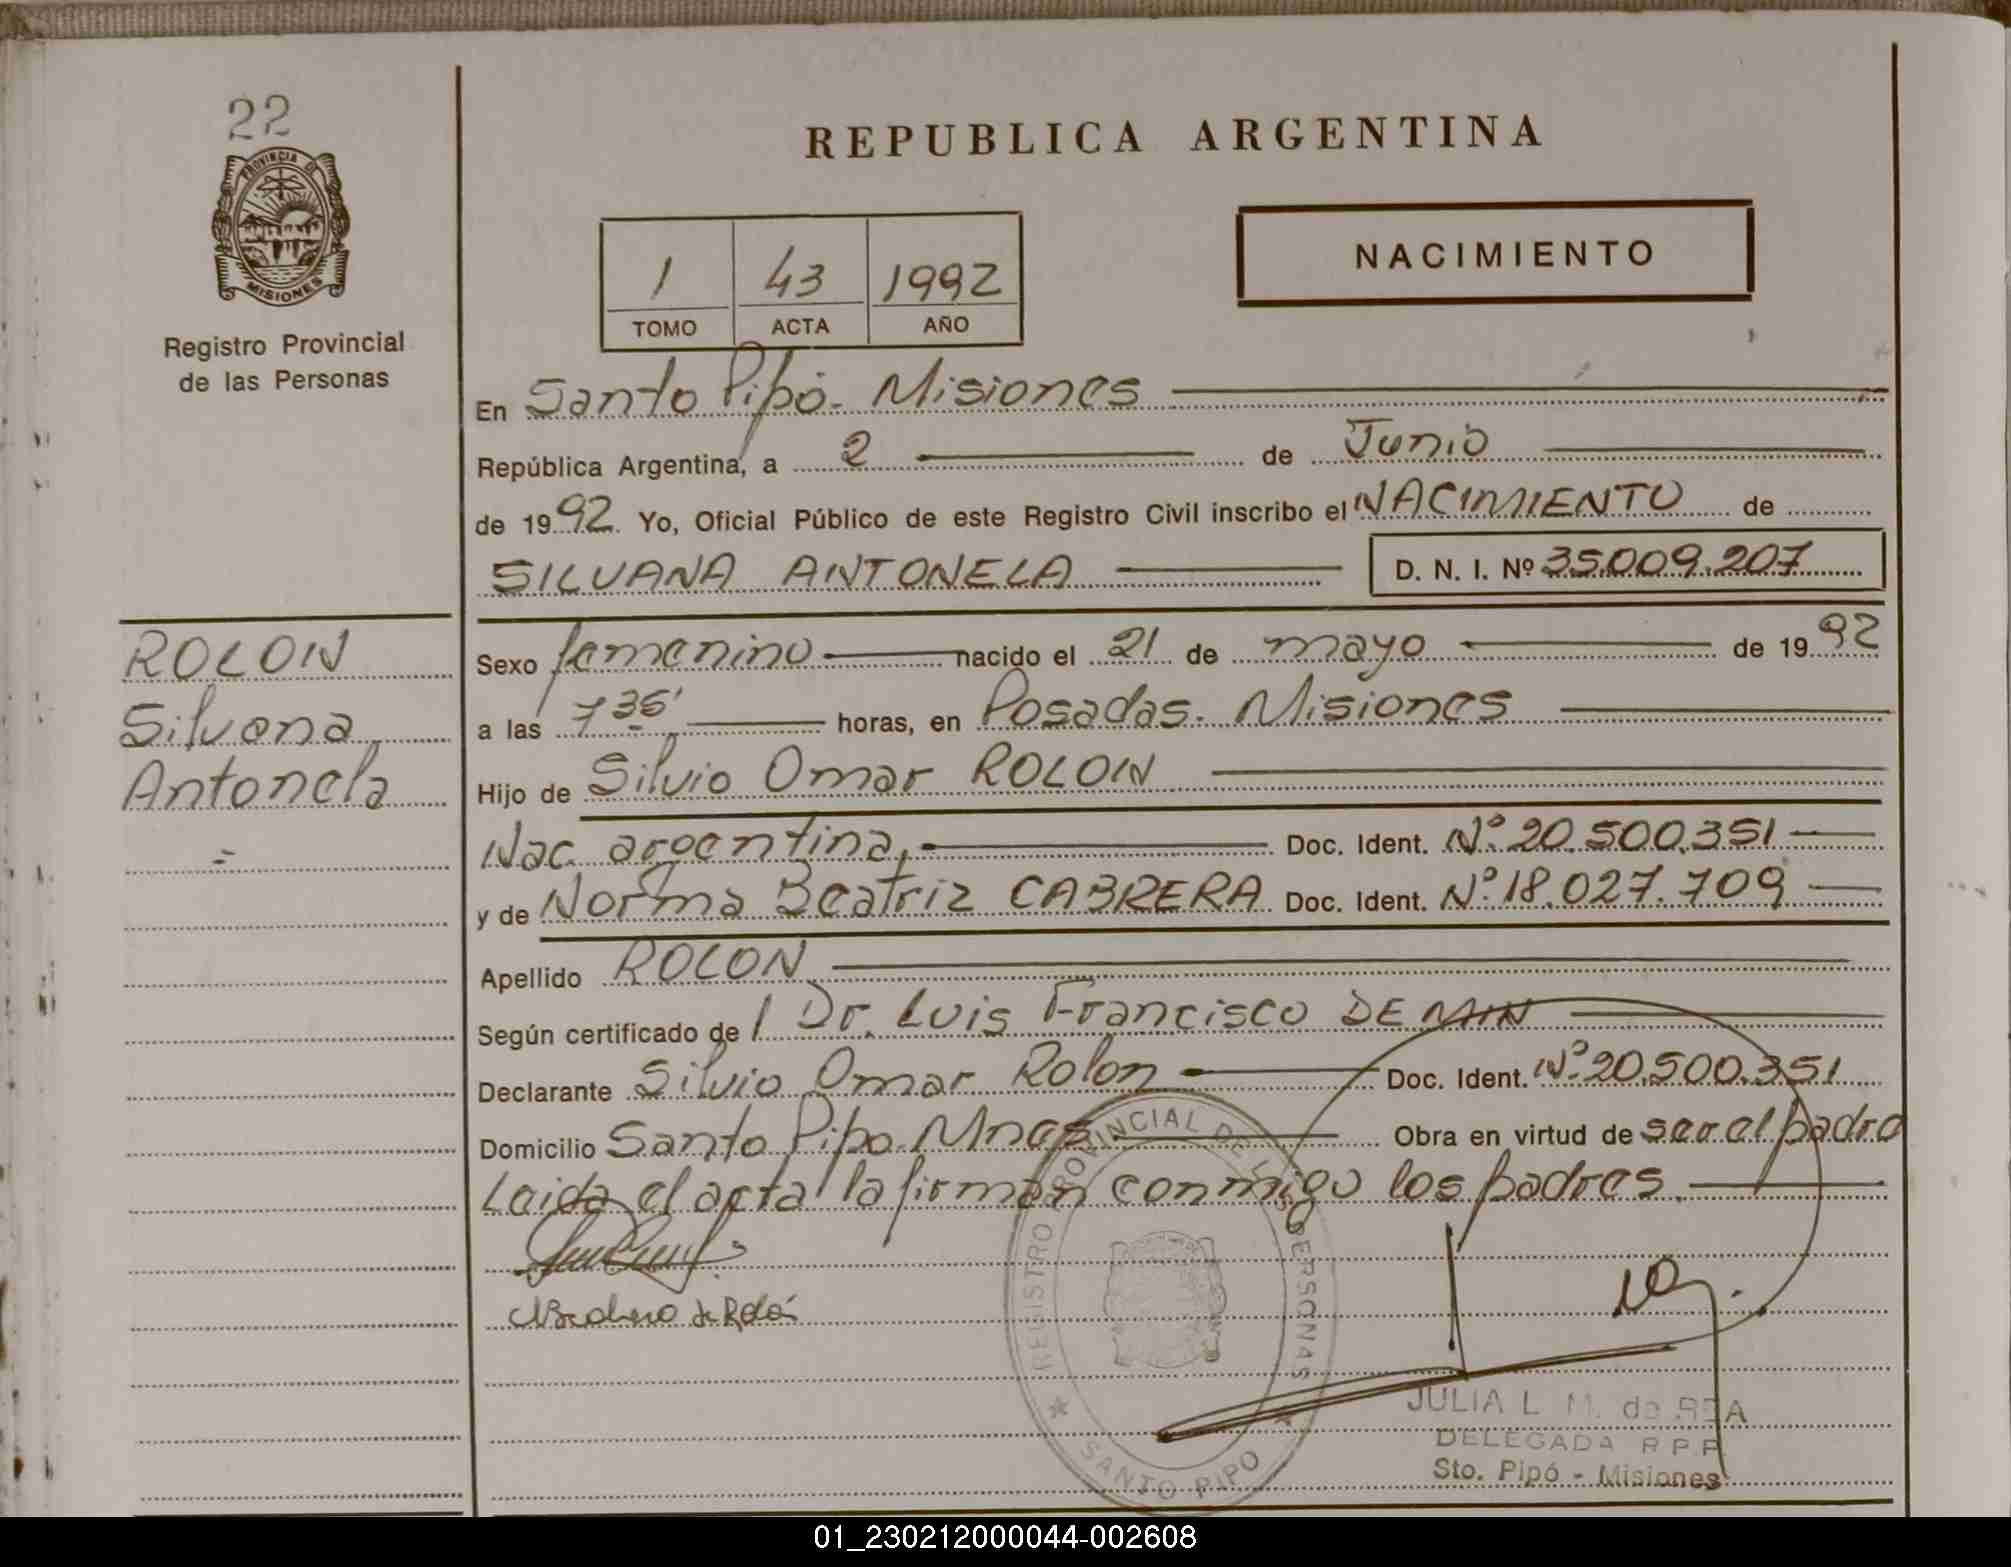 22
PROVINCIA DE
MISIONES
Registro Provincial
de las Personas
REPUBLICA ARGENTINA
NACIMIENTO
1 43 1992
TOMO ACTA AÑO
En Santo Pipó. Misiones
República Argentina, a 2 de Junio
de 1992 Yo, Oficial Público de este Registro Civil inscribo el NACIMIENTO de
SILVANA ANTONELA D. N. I. Nº 35.009.207
ROLON
Silvana
Antonela
Sexo femenino nacido el 21 de mayo de 1992
a las 7 35' horas, en Posadas. Misiones
Hijo de Silvio Omar ROLON
Nac. argentina, Doc. Ident. Nº 20.500.351
y de Norma Beatriz CABRERA Doc. Ident. Nº 18.027.709
Apellido ROLON
Según certificado de l Dr. Luis Francisco DE MIN
Declarante Silvio Omar Rolon Doc. Ident. Nº 20.500.351
Domicilio Santo Pipo. Mnes Obra en virtud de ser el padre
Leida el acta la firman conmigo los padres.
de Rolón
REGISTRO PROVINCIAL DE LAS PERSONAS
SANTO PIPO
JULIA L. M. de
DELEGADA R P P
Sto. Pipó - Misiones
01_230212000044-002608